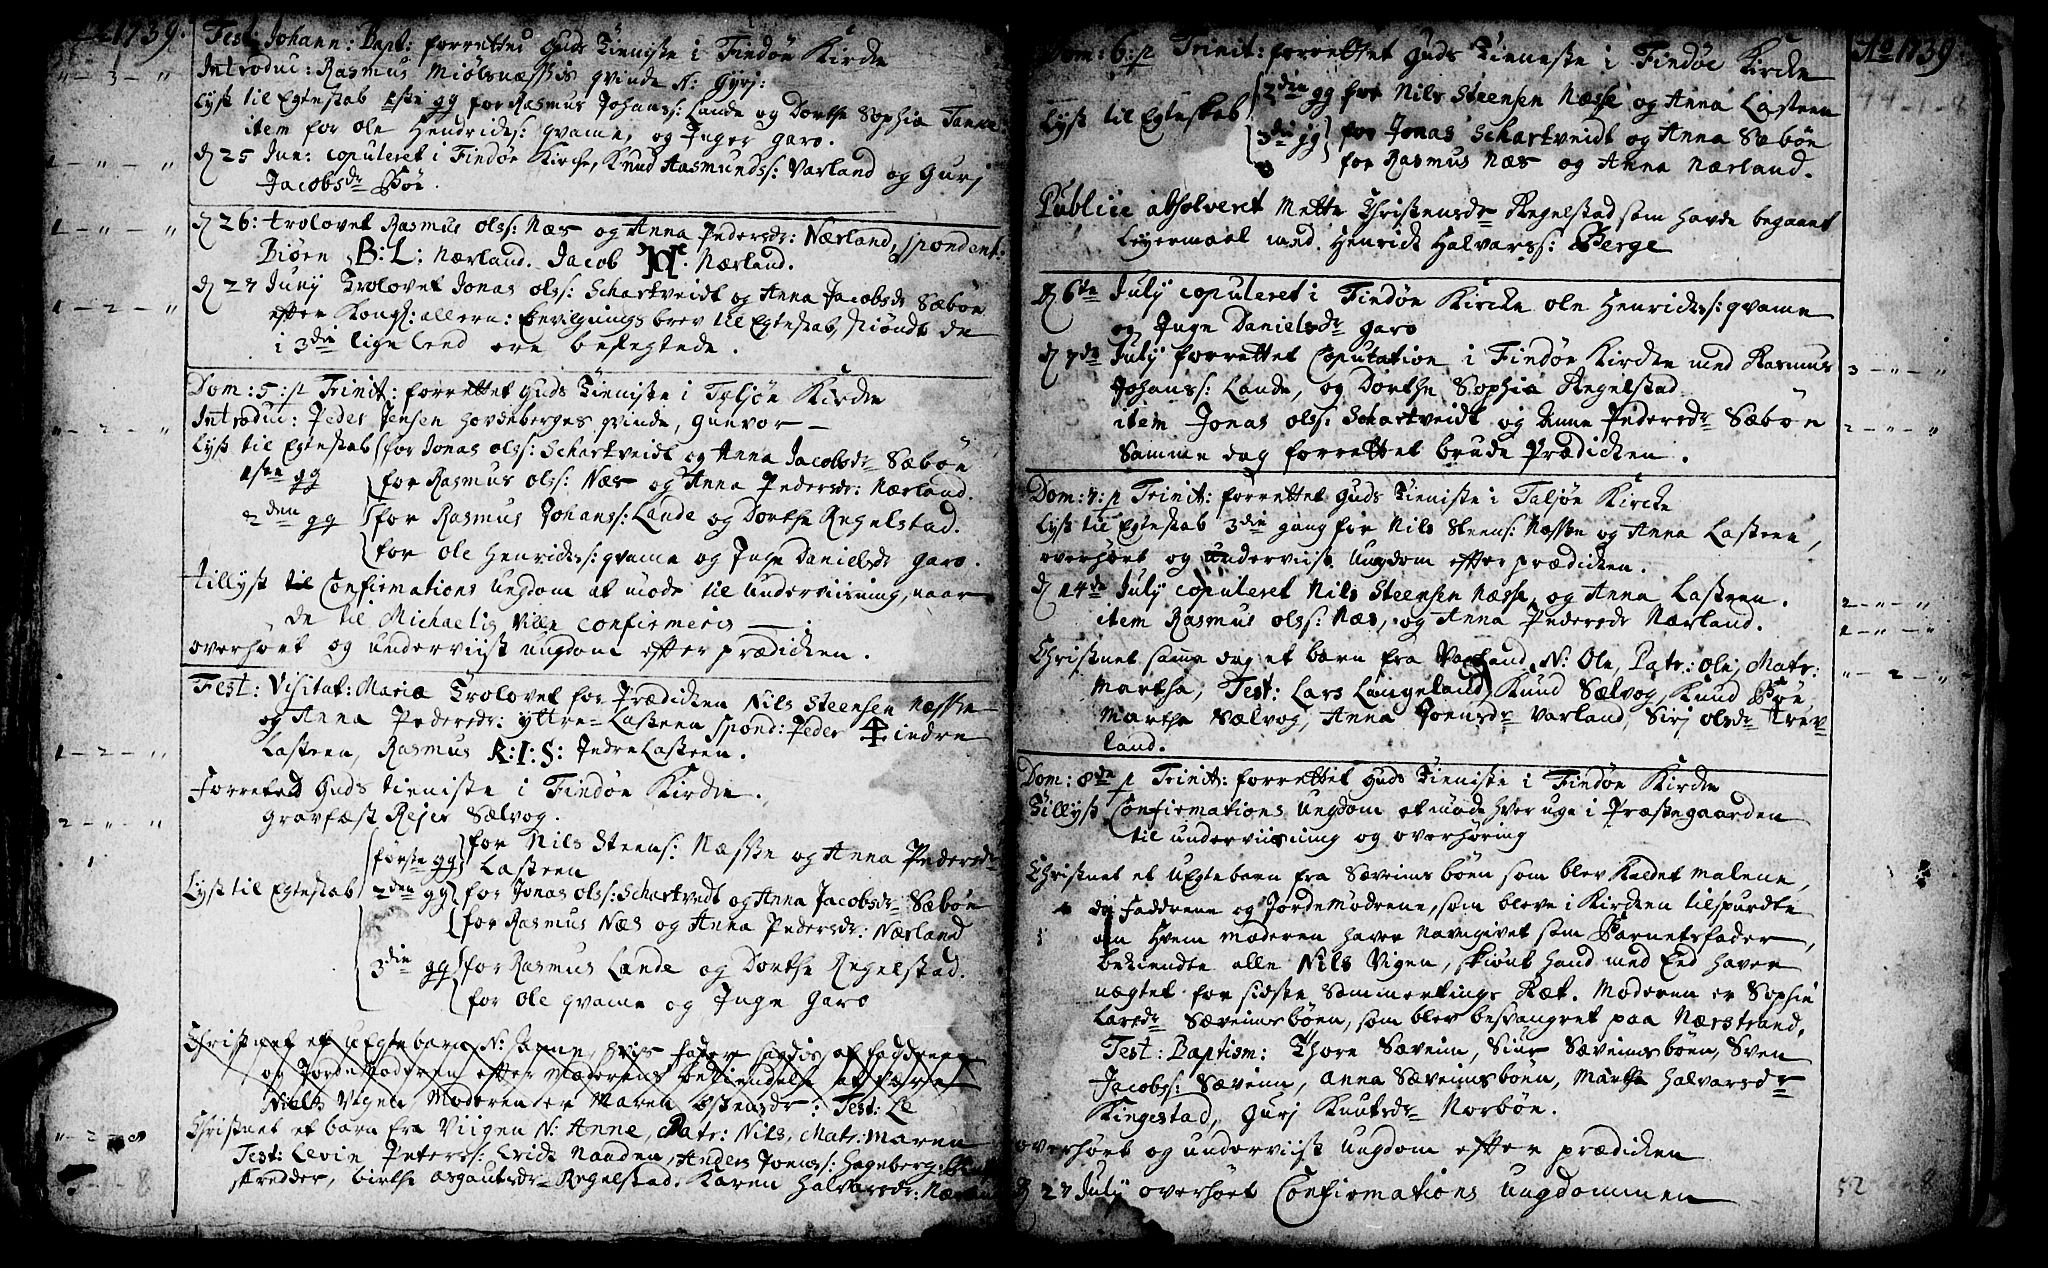 Ao 1739.
Fest: Johann: Bapt: forretted Guds Tieniste i Findøe Kirke
Introduc: Rasmus Miølsnæssis qvinde N: Gyrj:
Lyst til Egteskab 1ste gg for Rasmus Johans: Lande og Dorthe Sophia
item for ole Hendrichs: qvame, og Inger Garo.
d 25 Jun: copuleret i Findøe Kirche, Knud Aasmunds: Varland og Gurj
Jacobsdr Bøe.
d 26: trolovet Rasmus ols: Næs og Anna Pedersdr: Nærland, spondent:
Biøen B:L: Nærland. Jacob Nærland.
d 27 Junij Trolovet Jonas ols: Schartveidt og Anna Jacobsdr Sæbøe
efter Kongl: allern: bevilgnings brev til Egteskab, skiøndt de
i 3die lige leed ere beslegtede.
Dom: 5: p Trinit: forrettet Guds Tieniste i Taljøe Kircke
Introduc: Peder Jensen Hovdebergs qvinde, Gunvor –
Lyst til Egteskab for Jonas ols: Schartveidt og Anna Jacobsdr Sæbøe
1sten gg for Rasmus ols: Næs og Anna Pedersdr: Nærland.
2den gg for Rasmus Johans: Lande og Dorthe Regelstad.
for ole Henrichs: qvame og Inge Danielsdr Garo.
tillyst til Confirmations ungdom at møde til underviisning, naar
de til Michaelis ville confirmeris
overhørt og underviist ungdom efter prædicken.
Fest: Visitat: Mariæ Trolovet for Prædicken Nils Steensen Næsse
og Anna Pedersdr: yttre-Lasteen spond: Peder indre
Lasteen, Rasmus R:I:S: Indre Lasteen.
Forretted Guds tieniste i Findøe Kircke.
Gravfæst Rejer Sælvog.
første gg for Nils Steens: Næsse og Anna Pedersdr
Lasteen
Lyst til Egteskab 2den gg for Jonas ols: Schartvedt og Anna Jacobsdr Sæbøe
for Rasmus Næs og Anna Pedersdr: Nærland
3die gg for Rasmus Lande og Dorthe Regelstad.
for ole qvame og Inge Garo
Christnet et uegte barn N: Anne, hvis fader sagdis af fadderne
og Jordemoderen efter Moderens bekiendelse at være
Niels Vigen Moderen er Maren Test: Le
Christnet et barn fra Viigen N: Anne, Patr: Nils, Matr: Maren
Test: Levin Peters: Erich Nauden, Anders Joens: Hageberg,
skredder, birthe Asgautsdr Regelstad. Karen Halvarsdr:
Ao 1739
Dom: 6: p Trinit: forrettet Guds Tieniste i Findøe Kircke
2den gg for Nils Steensen Næsse og Anna Lasteen
Lyst til Egteskab
3die gg for Jonas Schartveidt og Anna Sæbøe
for Rasmus Næs og Anna Nærland.
Publice absolveret Mette Christensdr Regelstad som havde begaaet
Leyermaal med Henrich Halvars: Berge
d 6te Julij copuleret i Findøe Kircke ole Henrichs: qvame
og Inge Danielsdr Garo
d 7de Julij forrettet Copulation i Findøe Kircke med Rasmus
Johans: Lande, og Dorthe Sophia Regelstad.
item Jonas ols: Schartveidt og Anne Pedersdr Sæbøe
Samme dag forrettet brude Prædicken.
Dom: 7: p Trinit: forrettet Guds Tieniste i Taljøe Kircke
Lyst til Egteskab 3die gang for Nils Steens: Næsse og Anna Lasteen,
overhørt og underviist ungdom efter prædicken.
d 14de Julij copuleret Nils Steensen Næsse, og Anna Lasteen.
item Rasmus ols: Næs, og Anna Pedersdr Nærland.
Christnet samme dag et barn fra Varland N: Ole, Patr: ole, Matr:
Martha, Test: Lars Langeland, Knud Sælvog, Knud Bøe
Marthe Sælvog, Anna Joensdr Varland, Sirj olsdr
land.
Dom: 8de p Trinit: forrettet Guds Tieniste i Findøe Kircke
Tillyst Confirmations Ungdom at møde hver uge i Præstegaarden
til underviisning og overhøring
Christnet et uEgte barn fra Sæveims bøen som blev kaldet Malene,
da Faddrene og Jordemodrene, som bleve i Kircken tilspurdte
om hvem moderen haver navngivet som Barnets fader,
bekiendte alle Nils Vigen, skiønt hand med Eed haver
nægtet for sidste Sommertings Ræt. Moderen er Sophie
Larsdr Sæveimsbøen, som blev besvangret paa Nærstrand,
Test: Baptism: Thore Sæveim, Siur Sæveimsbøen, Sven
Jacobs: Sæveim, Anna Sæveimsbøen, Marthe Halvarsdr
Kingestad, Gurj Knutsdr Norbøe.
overhørt og underviist Ungdom efter prædicken
d 27 Julij overhørt Confirmations Ungdommen
52